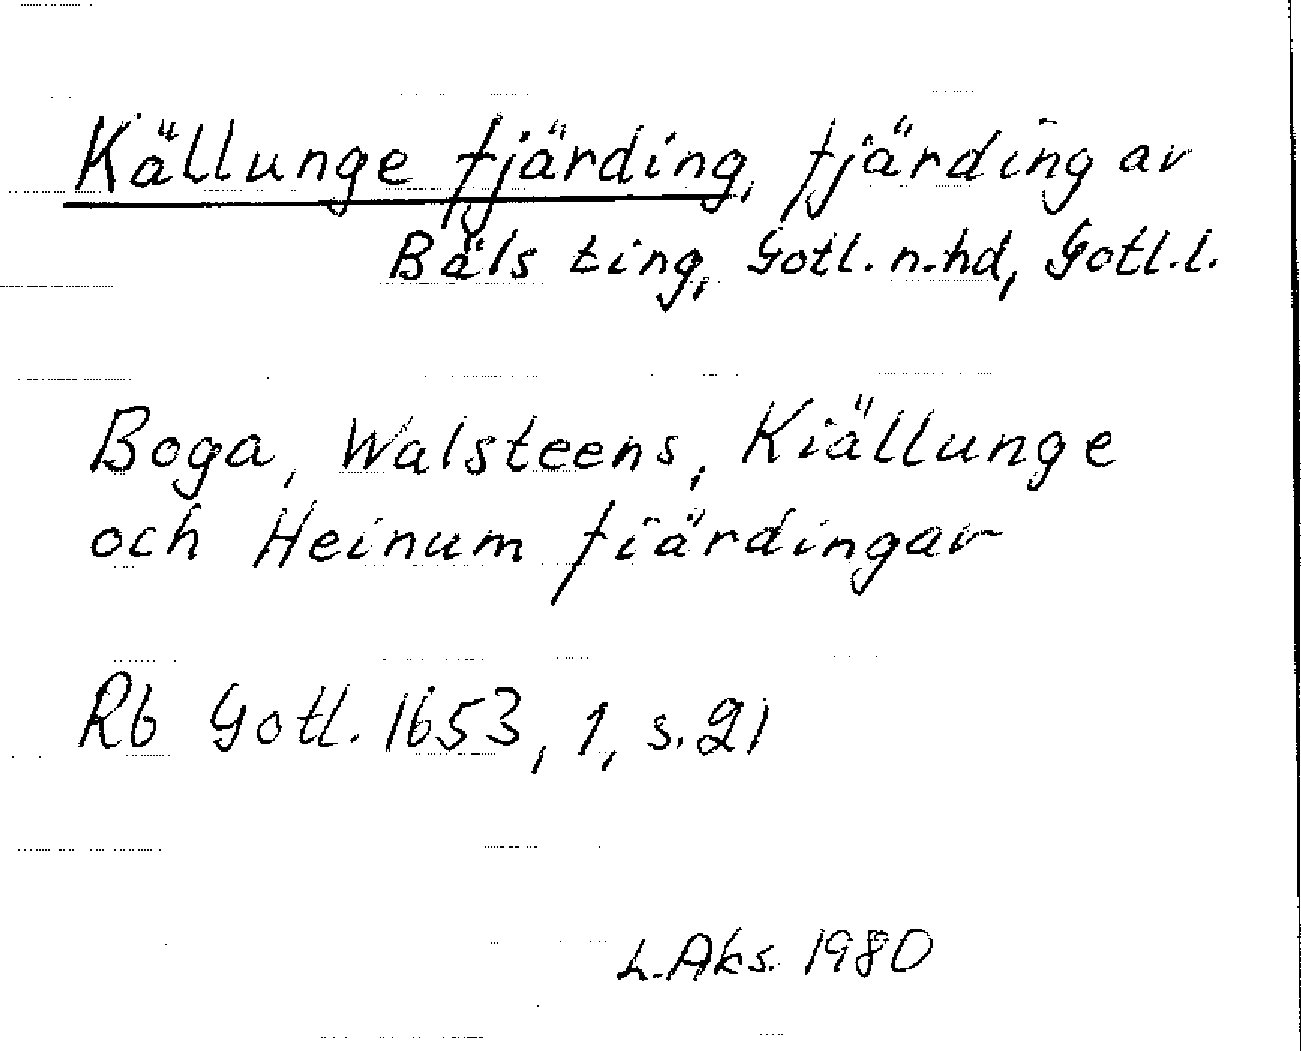 Källunge fjärding, fjärding av
Bäls ting, Gotl. n. hd, Gotl. l.
Boga, Walsteens, Kiällunge
och Heinum fiärdingar
Rb Gotl. 1653, 1, s. 21
L. Aks. 1980